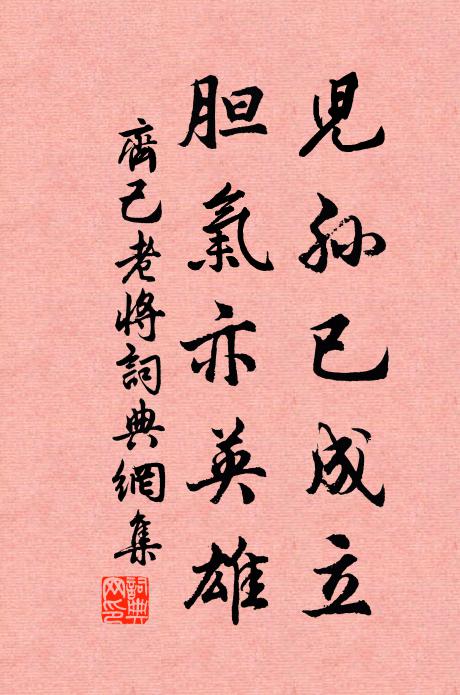 兒孫已成立
胆氣亦英雄
齊己老將詞典網集
詞典网印